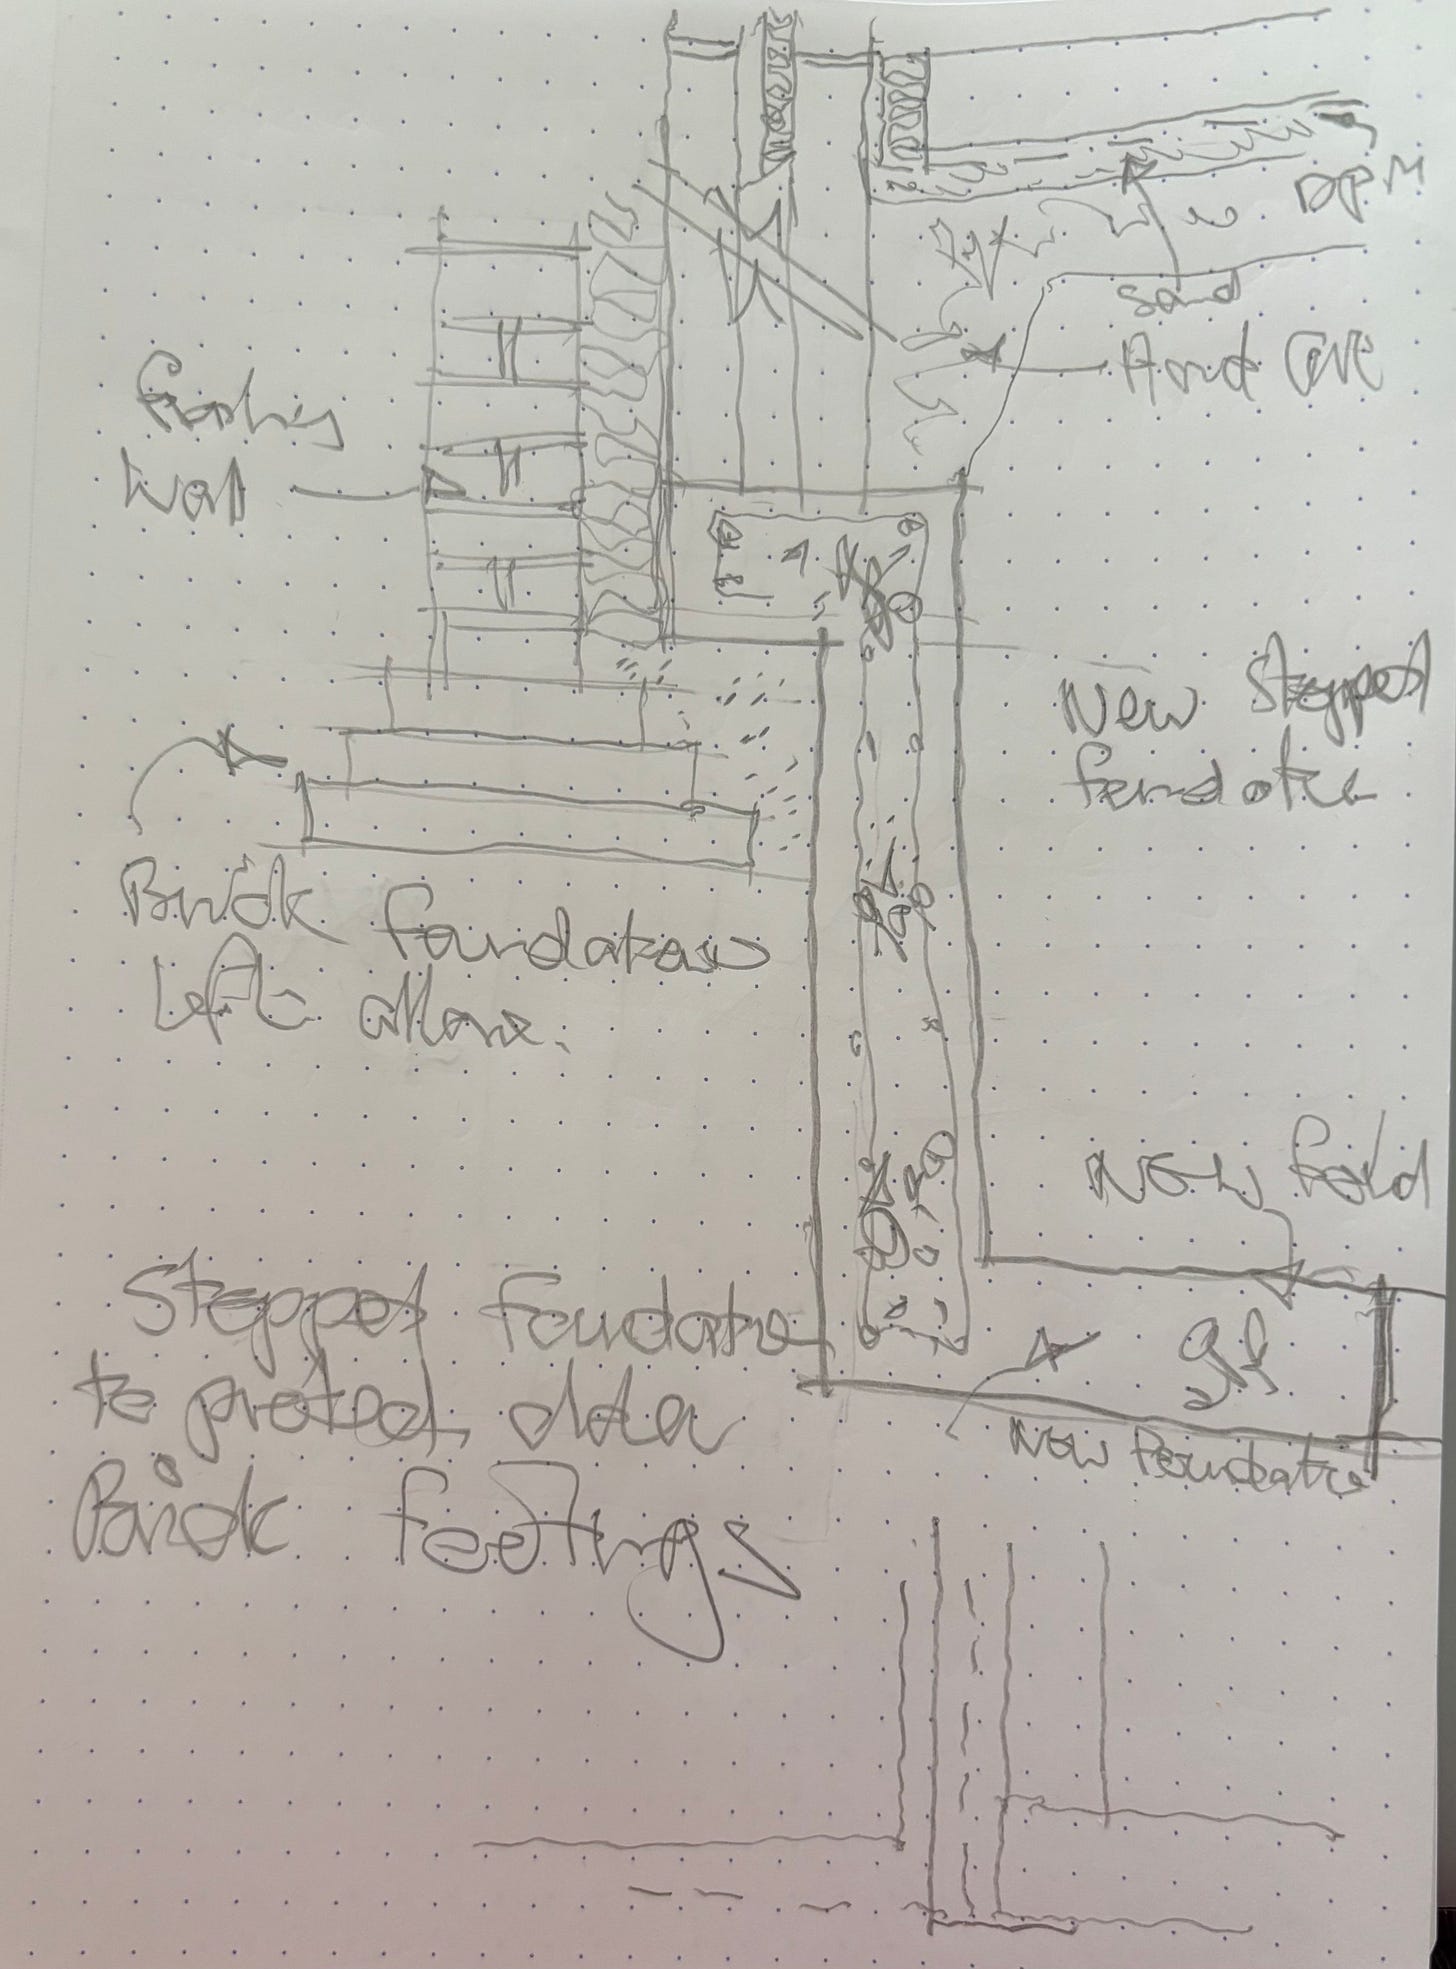 DPM
Sand
Hard Core
Wall
New Stepped
Brick foundations
Left alone.
New
New foundation
Stepped foundation
to protect older
Brick footings